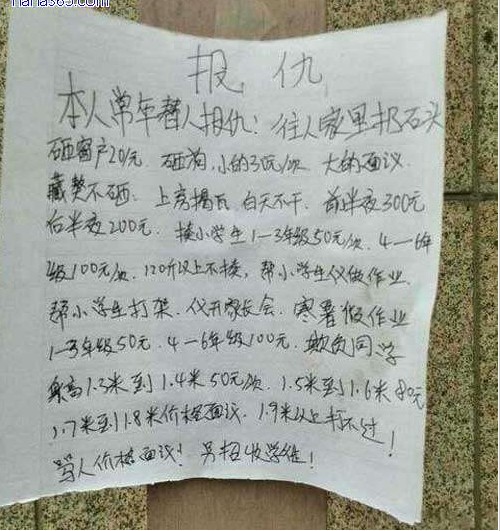 haha365.com
报仇
本人常年替人报仇：往人家里扔石头
砸窗户20/元. 砸狗,小的30元/次 大的面议
藏獒不砸. 上房揭瓦 白天不干. 前半夜300元
后半夜200元. 揍小学生1-3年级50元/次. 4-6年
级100元/次. 120斤以上不揍, 帮小学生仪做作业.
帮小学生打架. 仪开家长会. 寒暑假作业
1-3年级50元. 4-6年级100元. 欺负同学
身高1.3米到1.4米50元/次. 1.5米到1.6米80元
1.7米到1.8米价格面议. 1.9米以上打不过!
骂人价格面议! 另招收学徒!